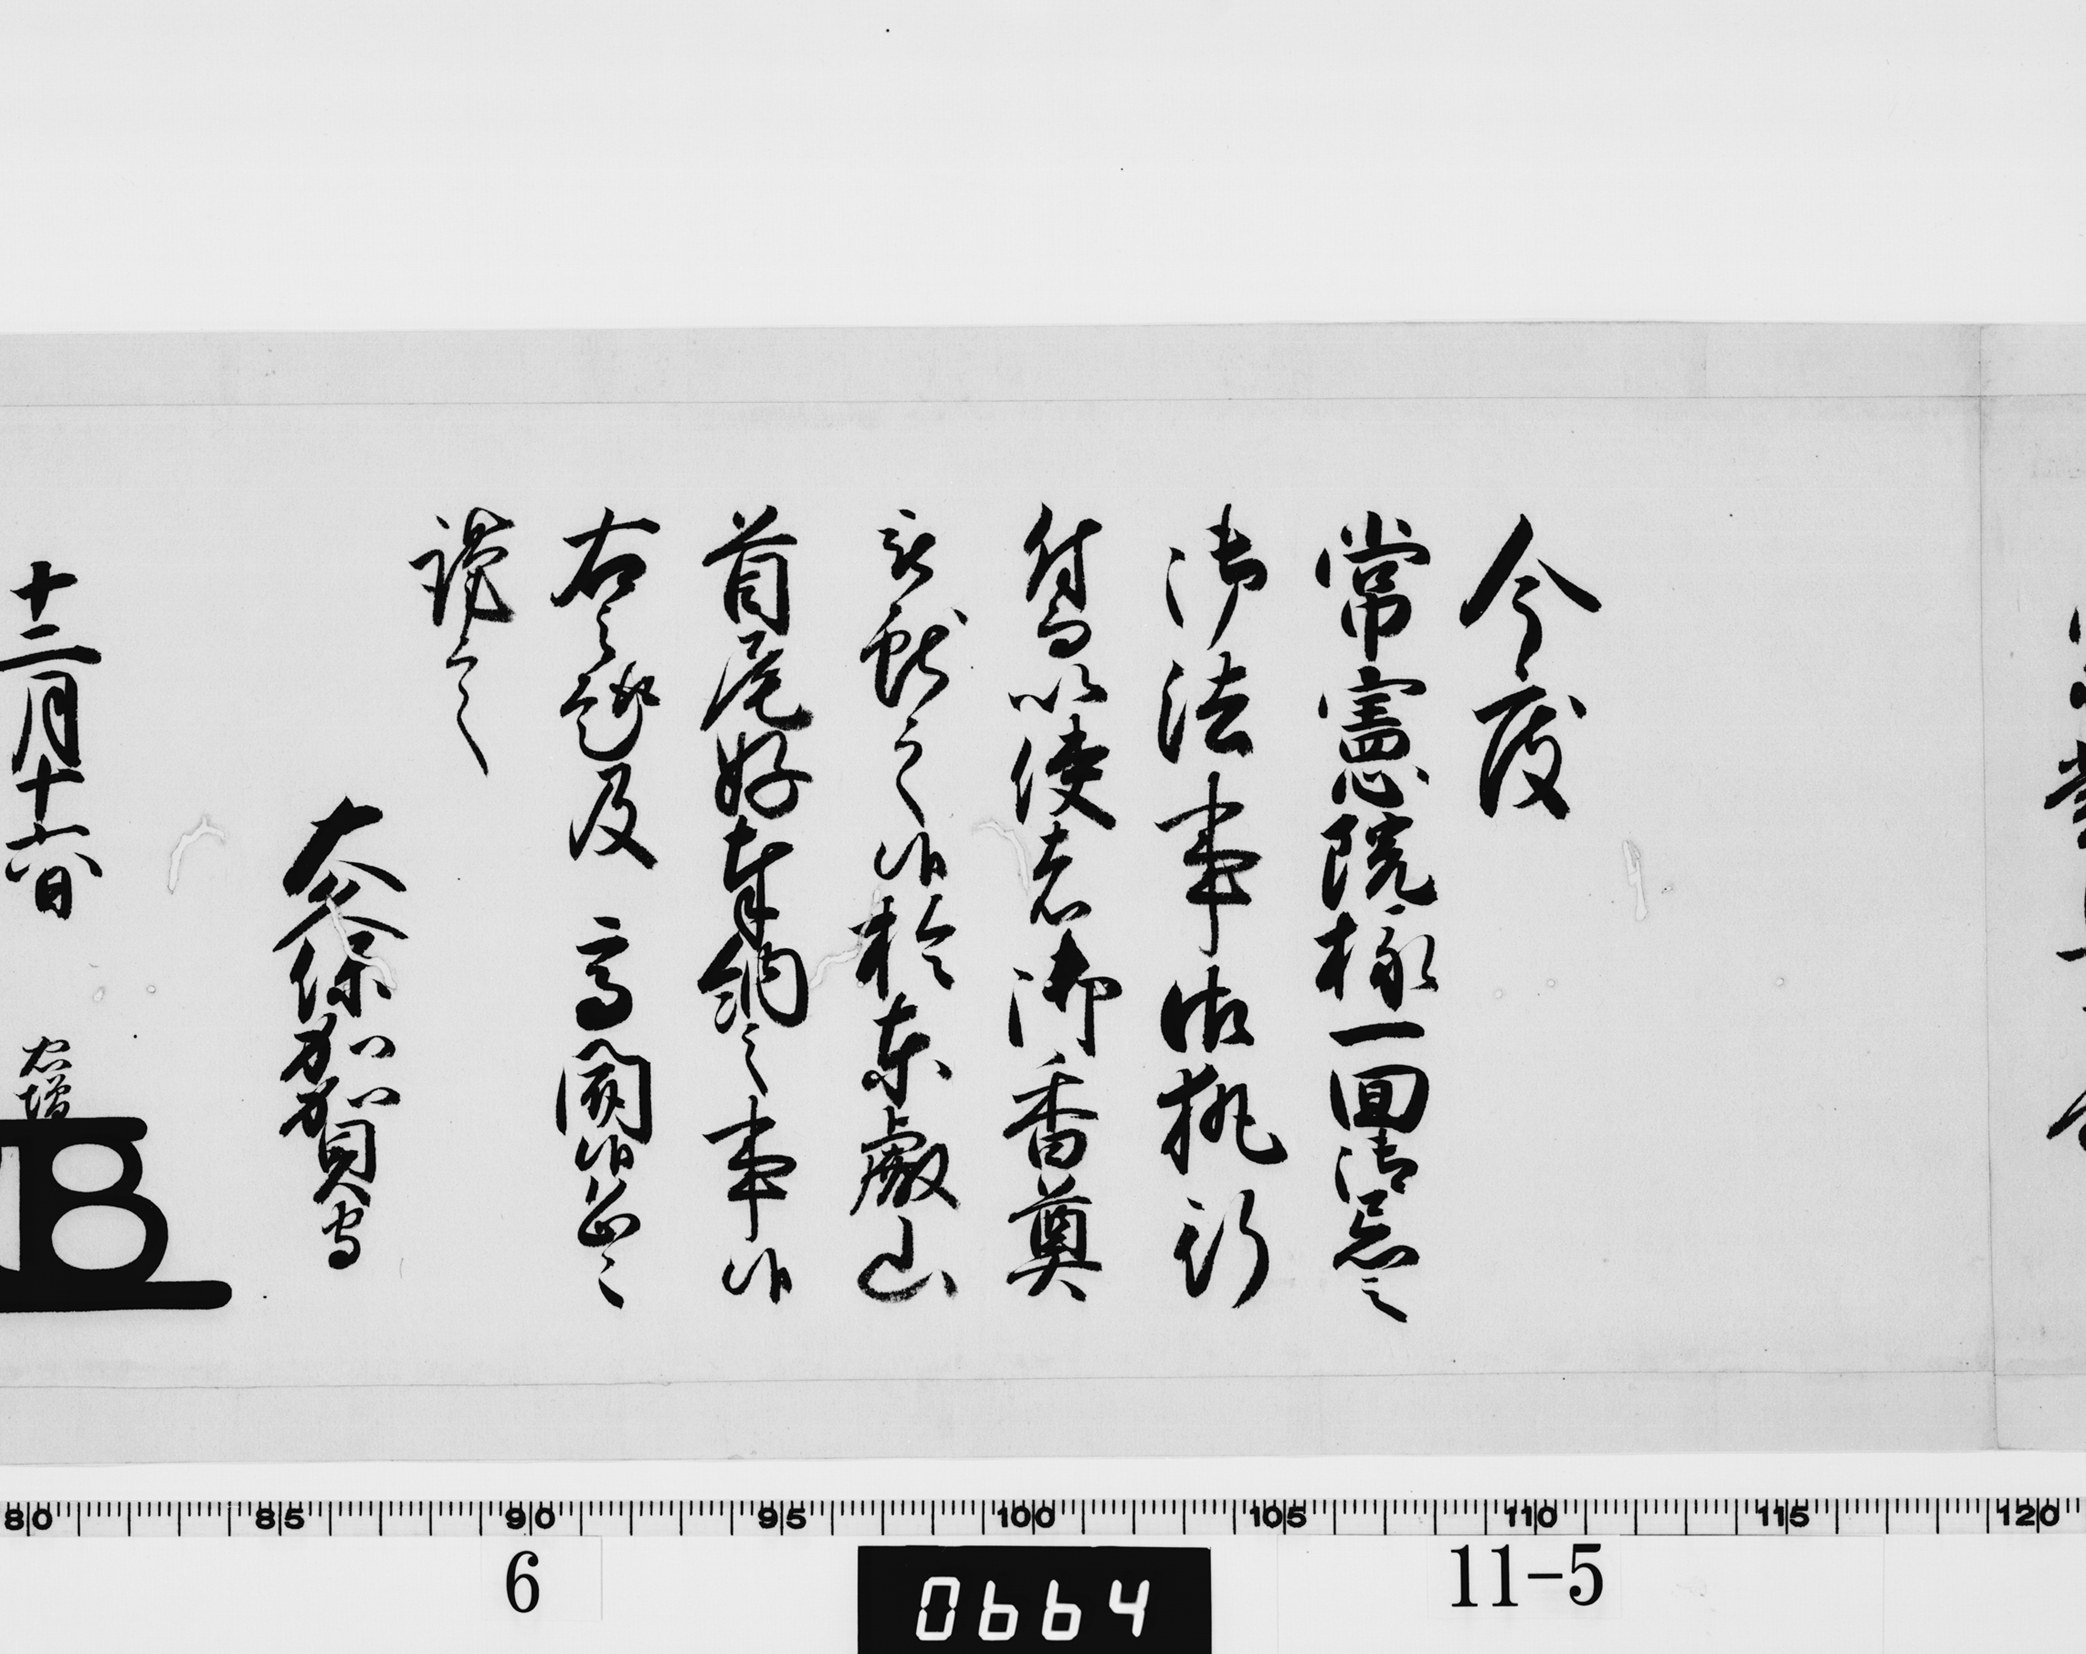 今度
常憲院様一回御忌之
御法事御執行
付而以使者御香奠
被献之候於東叡山
首尾好奉納之事候
右之趣及 高聞候恐々
謹言
大久保加賀守
十二月十六日 忠増
80 85 90 95 100 105 110 115 120
6 0664 11-5